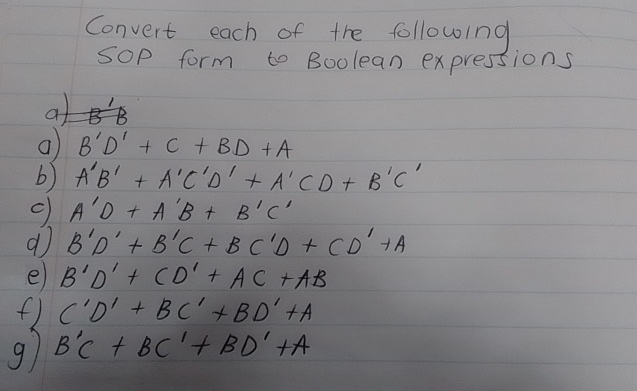 Convert each of the following
SOP form to Boolean expressions
a) B'B
a) B'D' + C + BD + A
b) A'B' + A'C'D' + A'CD + B'C'
c) A'D + A'B + B'C'
d) B'D' + B'C + BC'D + CD' + A
e) B'D' + CD' + AC + AB
f) C'D' + BC' + BD' + A
g) B'C + BC' + BD' + A